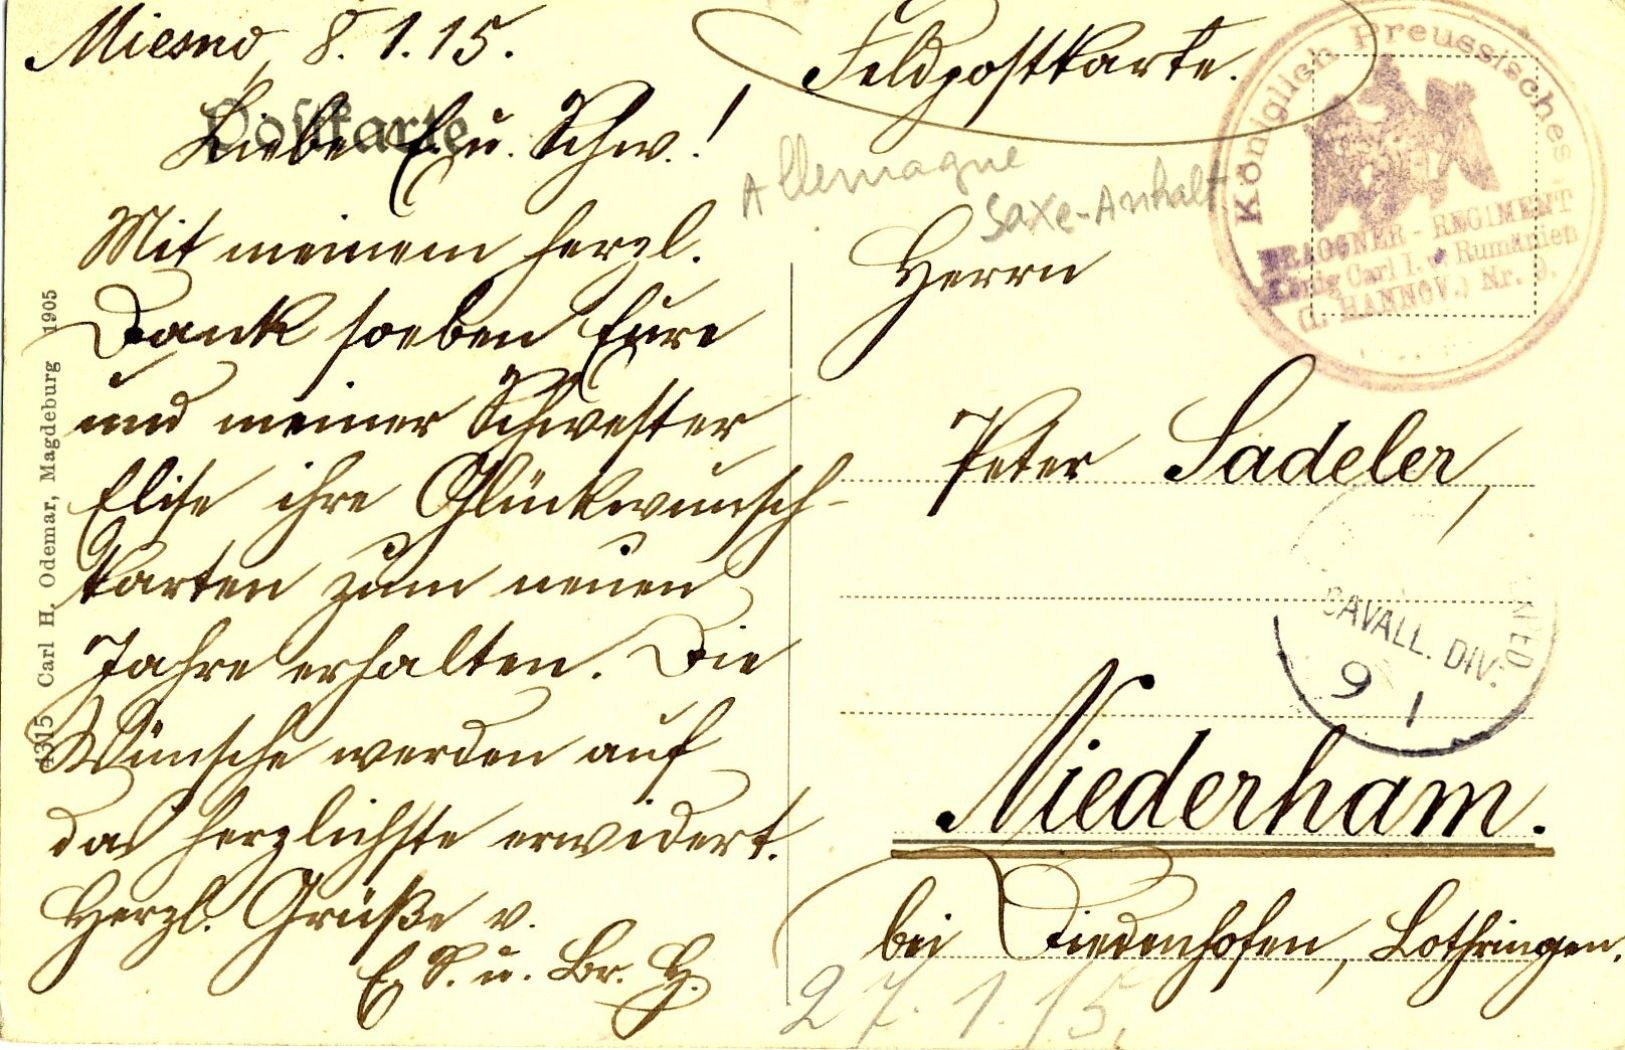 Miesno, 8.1.15.
Postkarte
Liebe E. u. Schw.!
Mit meinem herzl.
Dank soeben Eure
und meiner Schwester
Elise ihre Glückwunsch-
karten zum neuen
Jahre erhalten. Die
Wünsche werden auf
das herzlichste erwidert.
Herzl. Grüße v.
E. S. u. Br. H.
4315 Carl H. Odemar, Magdeburg 1905
Feldpostkarte.
Allemagne
Saxe-Anhalt
Königlich Preussisches
DRAGONER-REGIMENT
König Carl I. v. Rumänien
(1. HANNOV.) Nr. 9.
Herrn
Peter Sadeler,
CAVALL. DIV.
9 1
Niederham.
bei Diedenhofen, Lothringen.
27.1.15.